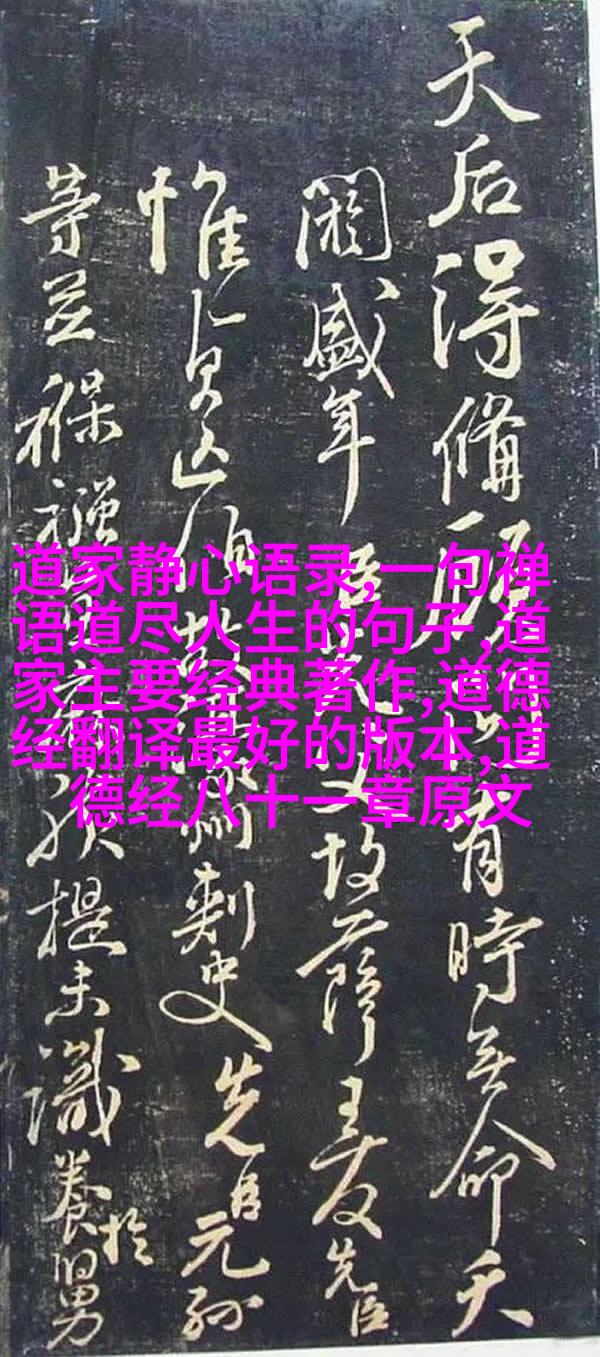 天后得備時無命夭
閼盛年父故薛王友先臣
惟貞亡伯故州刺史先臣元孫
等並褓襁孩提未識養於舅
道家静心语录,一句禅
语道尽人生的句子,道
家主要经典著作,道德
经翻译最好的版本,道
德经八十一章原文